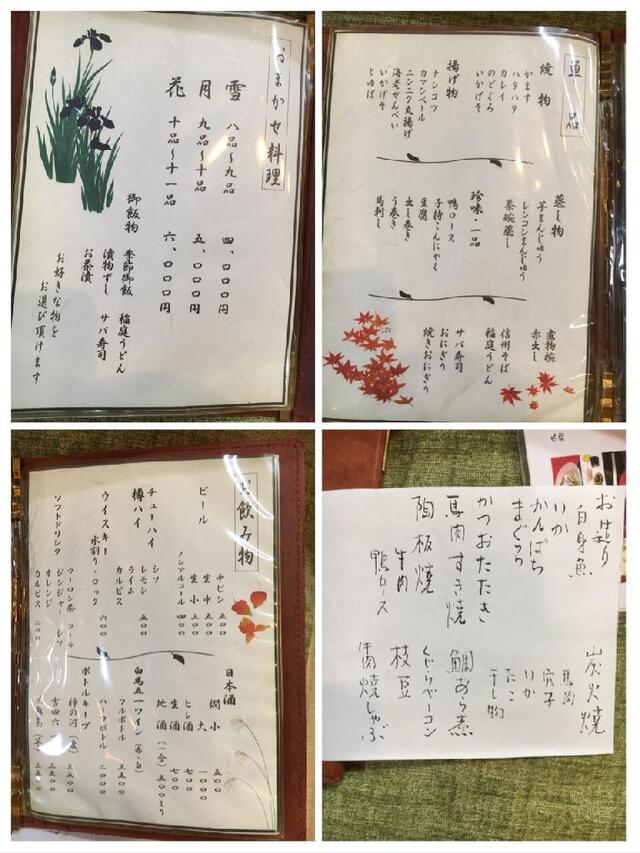 おまかせ料理
雪 八品〜九品 四、〇〇〇円
月 九品〜十品 五、〇〇〇円
花 十品〜十一品 六、〇〇〇円
御飯物
季節御飯 稲庭うどん
漬物ずし サバ寿司
お茶漬
お好きな物を
お選び頂けます
焼物
かます
ハタハタ
カレイ
のどぐろ
いかげそ
揚げ物
ナンコツ
カマンベール
ニンニク丸揚げ
海老せんべい
いかげそ
とゆば
蒸し物
芋まんじゅう
レンコンまんじゅう
茶碗蒸し
珍味・一品
鴨ロース
子持こんにゃく
豆腐
出し巻き
う巻き
馬刺し
煮物椀
赤出し
信州そば
稲庭うどん
サバ寿司
おにぎり
焼きおにぎり
お飲み物
ビール
中ビン 五〇〇
生中 五〇〇
生小 三〇〇
ノンアルコール 四〇〇
チューハイ
樽ハイ
シソ
レモン 五〇〇
ライム
カルピス
ウイスキー
水割り・ロック 六〇〇
ソフトドリンク
ウーロン茶 コーラ
ジンジャー シソ
オレンジ
カルピス 二〇〇
日本酒
燗 小 五〇〇
大 一〇〇〇
ヒレ酒 七〇〇
生酒 七〇〇
地酒(一合) 五〇〇より
白馬五一ワイン(赤・白)
フルボトル 三五〇〇
ハーフボトル 二〇〇〇
ボトルキープ
神の河(麦) 三五〇〇
吉四六 三五〇〇
お造り
白身魚
いか
かんぱち
まぐろ
かつおたたき
馬肉すき焼
陶板焼
牛肉
鴨ロース
炭火焼
馬肉
穴子
いか
たこ
干し物
鯛あら煮
くじらベーコン
枝豆
牛肉焼しゃぶ